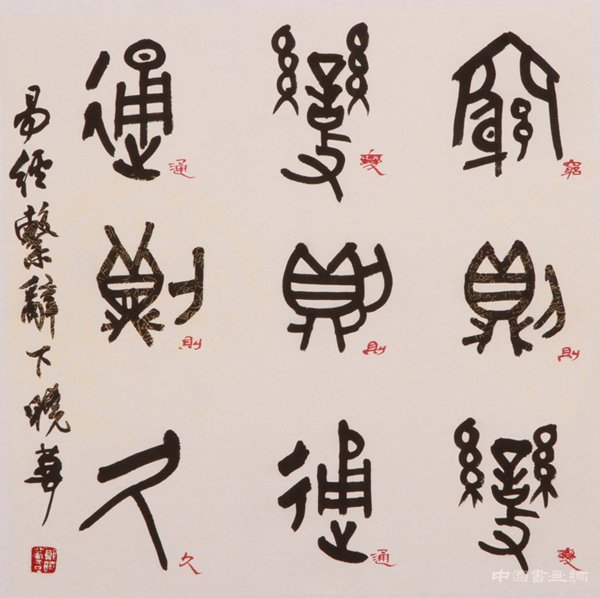 窮則變
變則通
通則久
易經繫辭下曉華
窮
則
變
變
則
通
通
則
久
中国書画網